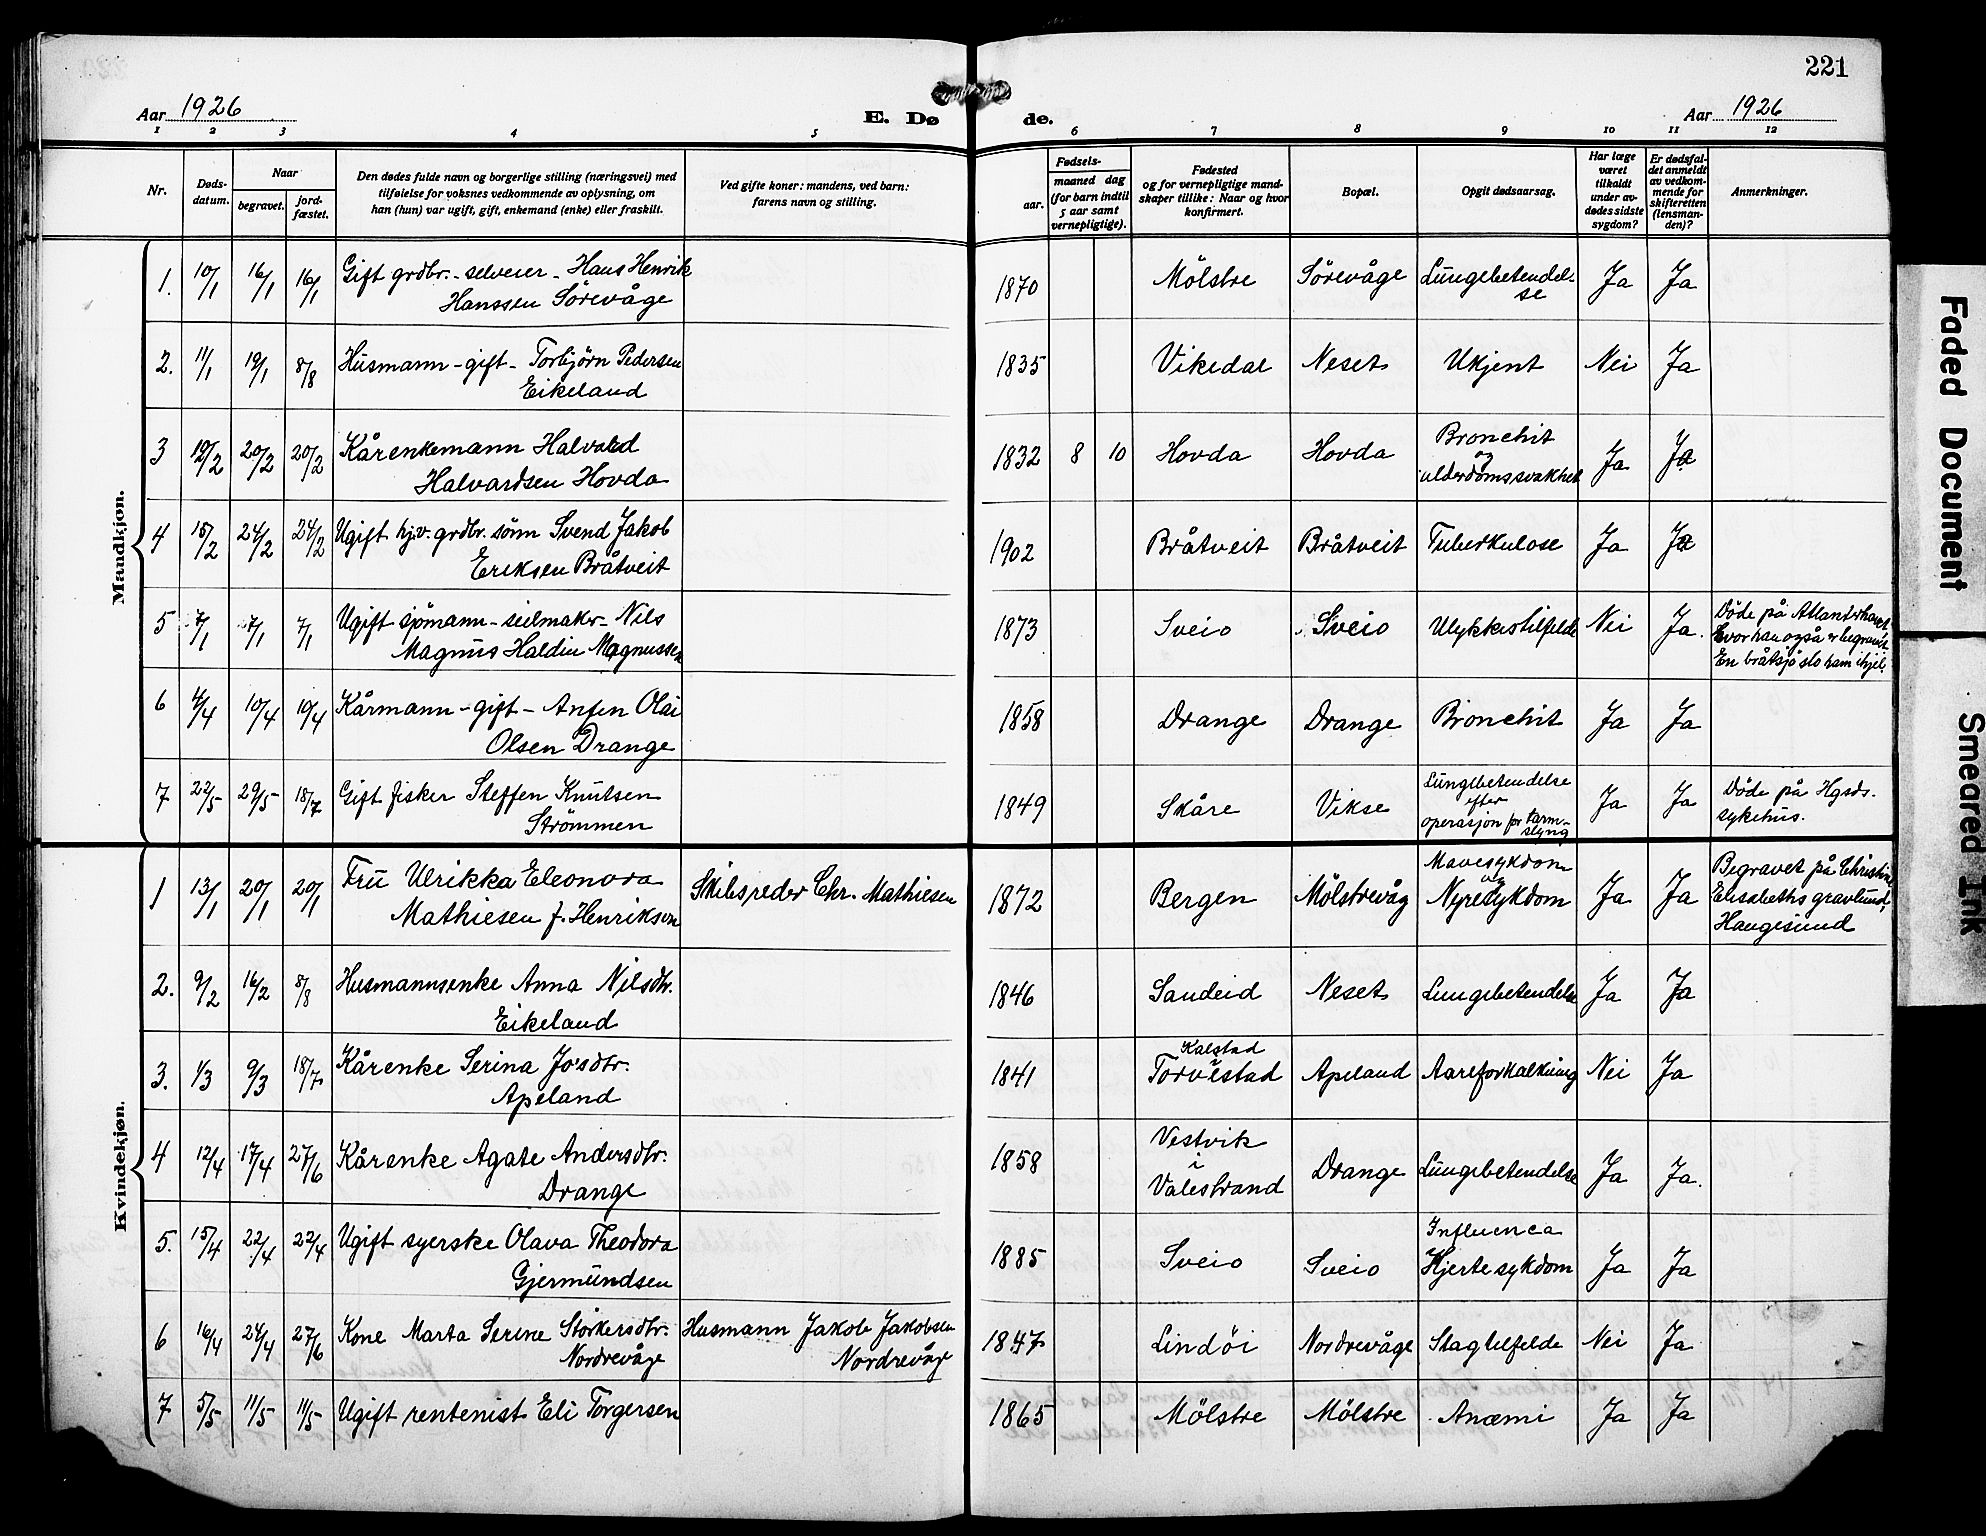 221
Aar 1926
E. Dø de.
Aar 1926
1 2 3 4 5 6 7 8 9 10 11 12
Nr.
Døds-
datum.
Naar
begravet.
jord-
fæstet.
Den dødes fulde navn og borgerlige stilling (næringsvei) med
tilføielse for voksnes vedkommende av oplysning, om
han (hun) var ugift, gift, enkemand (enke) eller fraskilt.
Ved gifte koner: mandens, ved barn:
farens navn og stilling.
Fødsels-
aar.
maaned dag
(for barn indtil
5 aar samt
vernepligtige).
Fødested
og for vernepligtige mand-
skaper tillike: Naar og hvor
konfirmert.
Bopæl.
Opgit dødsaarsag.
Har læge
været
tilkaldt
under av-
dødes sidste
sygdom?
Er dødsfal-
det anmeldt
av vedkom-
mende for
skifteretten
(lensman-
den)?
Anmerkninger.
Mandkjøn.
1. 10/1 16/1 16/1 Gift grdbr. - selveier - Hans Henrik
Hanssen Sörevåge
1870 Mölstre Sörevåge Lungebetendel-
se
Ja Ja
2. 11/1 19/1 8/8 Husmann - gift - Torbjörn Pedersen
Eikeland
1835 Vikedal Neset Ukjent Nei Ja
3 12/2 20/2 20/2 Kårenkemann Halvard
Halvardsen Hovda
1832 8 10 Hovda Hovda Bronchit
og
alderdomssvakhet
Ja Ja
4 15/2 24/2 24/2 Ugift hjv. grdbr. sönn Svend Jakob
Eriksen Bråtveit
1902 Bråtveit Bråtveit Tuberkulose Ja Ja
5 7/1 7/1 7/1 Ugift sjömann - seilmaker - Nils
Magnus Haldin Magnussen
1873 Sveio Sveio Ulykkestilfelde Nei Ja.
Döde på Atlanterhavet
hvor han også er begravet.
En bråtsjö slo ham ihjel.
6 4/4 10/4 10/4 Kårmann - gift - Anfen Olai
Olsen Drange
1858 Drange Drange Bronchit Ja Ja
7 22/5 29/5 18/7 Gift fisker Steffen Knutsen
Strömmen
1849 Skåre Vikse Lungebetendelse
efter
operasjon for tarm-
slyng
Ja Ja Döde på Hgsds.
sykehus.
Kvindekjøn.
1 13/1 20/1 20/1 Fru Ulrikka Eleonora
Mathiesen f. Henriksen
Skibsreder Chr. Mathiesen
1872 Bergen Mölstrevåg Mavesykdom
og
Nyresykdom
Ja Ja Begravet på Christine
Elisabeths gravlund,
Haugesund
2. 9/2 16/2 8/8 Husmannsenke Anna Nilsdtr.
Eikeland
1846 Sandeid Neset Lungebetendelse Ja Ja
3. 1/3 9/3 18/7 Kårenke Serina Jo'sdtr.
Apeland
1841 Kalstad
i
Torvestad Apeland Aareforkalkning Nei Ja
4 12/4 17/4 27/6 Kårenke Agate Andersdtr.
Drange
1858 Vestvik
i
Valestrand
Drange Lungebetendelse Ja Ja.
5. 15/4 22/4 22/4 Ugift syerske Olava Theodora
Gjermundsen
1885 Sveio Sveio Influenca
Hjertesykdom Ja Ja
6 16/4 24/4 27/6 Kone Marta Serine Storkersdtr.
Nordrevåge
Husmann Jakob Jakobsen
Nordrevåge
1847 Lindöi Nordrevåge Slagtilfelde Nei Ja
7 5/5 11/5 11/5 Ugift rentenist Eli Torgersen
1865 Mölstre Mölstre Anæmi Ja Ja
Faded Document
Smeared Ink